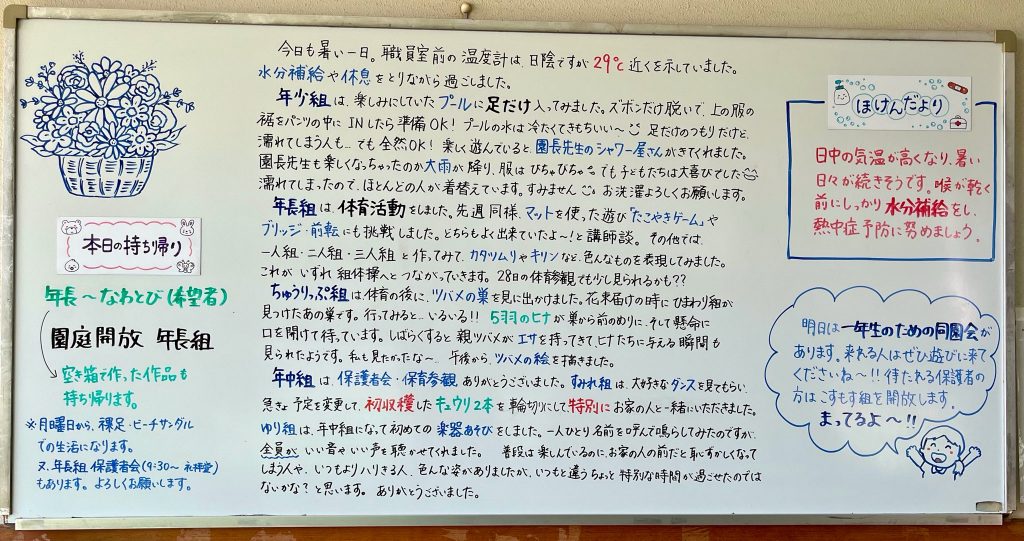 今日も暑い一日。職員室前の温度計は、日陰ですが29℃近くを示していました。
水分補給や休息をとりながら過ごしました。
年少組は、楽しみにしていたプールに足だけ入ってみました。ズボンだけ脱いで、上の服の
裾をパンツの中にINしたら準備OK！プールの水は冷たくてきもちいい〜 足だけのつもりだけど、
濡れてしまう人も…でも全然OK！楽しく遊んでいると、園長先生のシャワー屋さんがきてくれました。
園長先生も楽しくなっちゃったのか大雨が降り、服はびちゃびちゃ でも子どもたちは大喜びでした
濡れてしまったので、ほとんどの人が着替えています。すみません お洗濯よろしくお願いします。
年長組は、体育活動をしました。先週同様、マットを使った遊び「たこやきゲーム」や
ブリッジ・前転にも挑戦しました。どちらもよく出来ていたよ〜！と講師談。その他では、
一人組・二人組・三人組と作ってみて、カタツムリやキリンなど、色んなものを表現してみました。
これがいずれ組体操へとつながっていきます。28日の体育参観でも少し見られるかも??
ちゅうりっぷ組は体育の後に、ツバメの巣を見に出かけました。花束届けの時にひまわり組が
見つけたあの巣です。行ってみると…いるいる!! 5羽のヒナが巣から前のめりに、そして懸命に
口を開けて待っています。しばらくすると親ツバメがエサを持ってきてヒナたちに与える瞬間も
見られたようです。私も見たかったな〜… 午後から、ツバメの絵を描きました。
年中組は、保護者会・保育参観ありがとうございました。すみれ組は、大好きなダンスを見てもらい、
急きょ予定を変更して、初収穫したキュウリ2本を輪切りにして、特別にお家の人と一緒にいただきました。
ゆり組は、年中組になって初めての楽器あそびをしました。一人ひとり名前を呼んで鳴らしてみたのですが、
全員が、いい音やいい声を聴かせてくれました。 普段は楽しんでいるのに、お家の人の前だと恥ずかしくなって
しまう人や、いつもよりハリきる人、色んな姿がありましたが、いつもと違うちょと特別な時間が過ごせたのでは
ないかな？と思います。ありがとうございました。
本日の持ち帰り
年長〜なわとび(希望者)
園庭開放 年長組
空き箱で作った作品も
持ち帰ります。
※月曜日から、裸足・ビーチサンダル
での生活になります。
又、年長組保護者会(9:30〜 礼拝堂)
もあります。よろしくお願いします。
ほけんだより
日中の気温が高くなり、暑い
日々が続きそうです。喉が乾く
前にしっかり水分補給をし、
熱中症予防に努めましょう。
明日は一年生のための同園会が
あります。来れる人はぜひ遊びに来て
くださいね〜!! 待たれる保護者の
方はこすもす組を開放します。
まってるよ〜!!